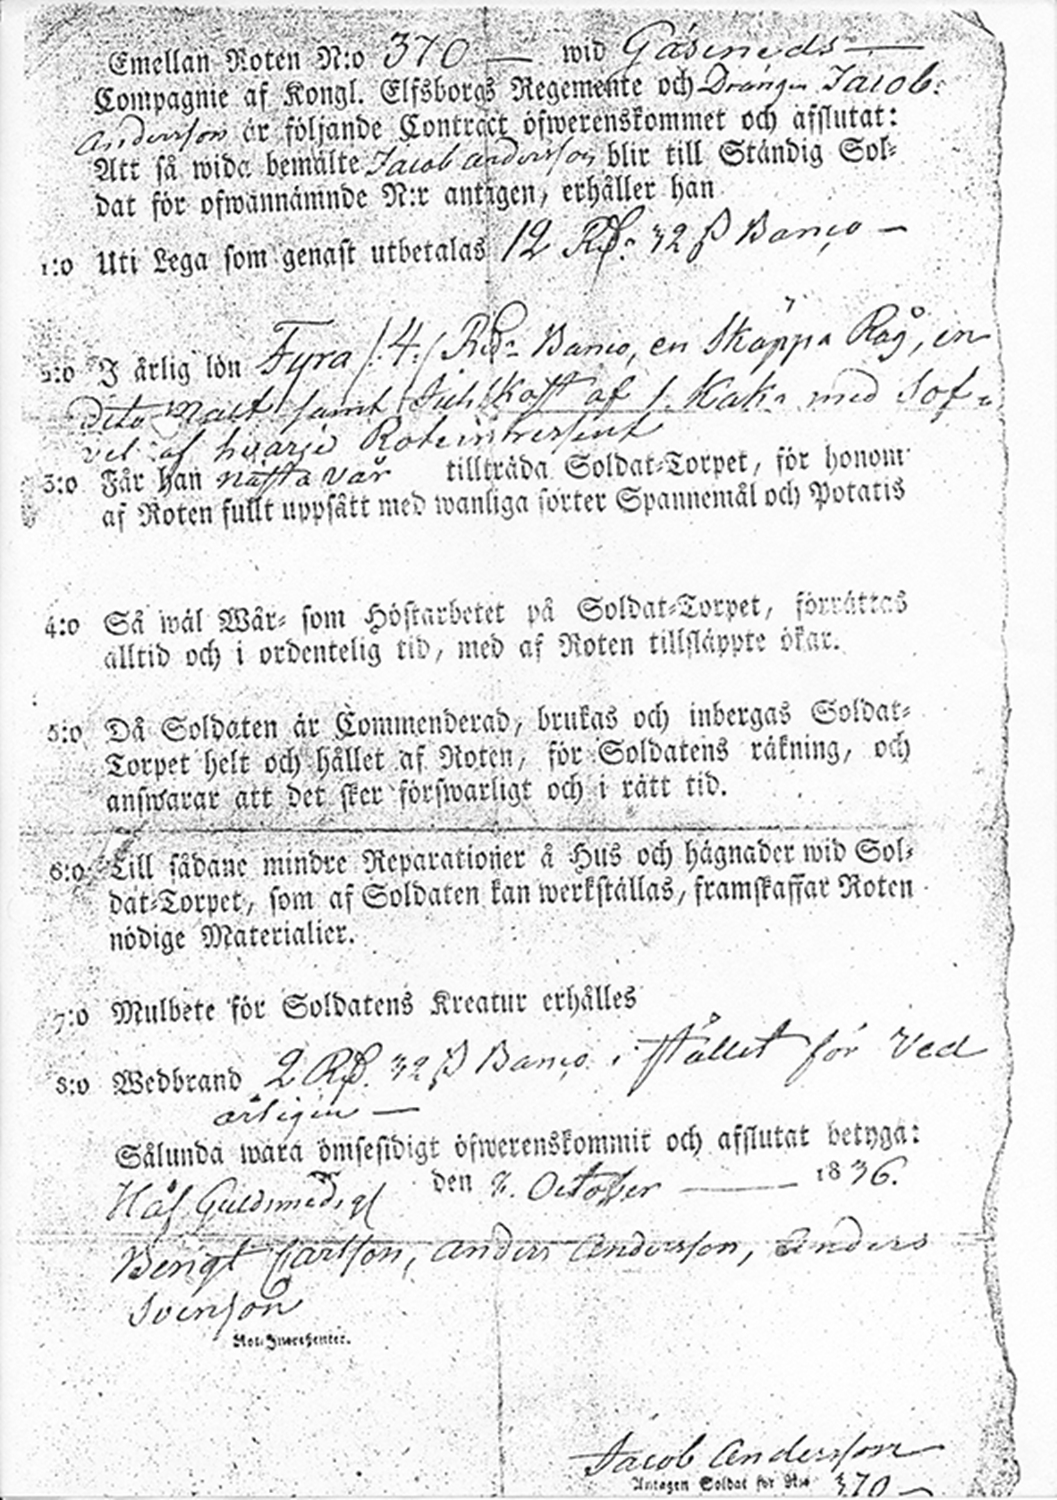 Emellan Roten N:o 370 — wid Gäseneds —
Compagnie af Kongl. Elfsborgs Regemente och Drängen Jacob
Andersson är följande Contract öfwerenskommet och afslutat:
Att så wida bemälte Jacob Andersson blir till Ständig Sol-
dat för ofwannämnde N:r antagen, erhåller han
1:o Uti Lega som genast utbetalas 12 Rd. 32 ß Banco —
2:o I årlig lön Fyra /:4:/ Rd. Banco, en Skäppa Råg, en
dito Malt samt af 1. Kaka med Sof-
vel af hvarje Roteintressent
3:o Får han nästa vår tillträda Soldat-Torpet, för honom
af Roten fullt uppsått med wanliga sorter Spannemål och Potatis
4:o Så wäl Wår- som Höstarbetet på Soldat-Torpet, förrättas
alltid och i ordentelig tid, med af Roten tillsläppte ökar.
5:o Då Soldaten är Commenderad, brukas och inbergas Soldat-
Torpet helt och hållet af Roten, för Soldatens räkning, och
answarar att det sker förswarligt och i rätt tid.
6:o Till sådane mindre Reparationer å Hus och hägnader wid Sol-
dat-Torpet, som af Soldaten kan werkställas, framskaffar Roten
nödige Materialier.
7:o Mulbete för Soldatens Kreatur erhålles
8:o Wedbrand 2 Rd. 32 ß Banco i stället för Ved
årligen —
Sålunda wara ömsesidigt öfwerenskommit och afslutat betyga:
den October — 1836.
Bengt Carlson, Anders Anderson, Anders
Svenson
Rot-Intressenter.
Jacob Andersson
Antagen Soldat för N:o 370 —